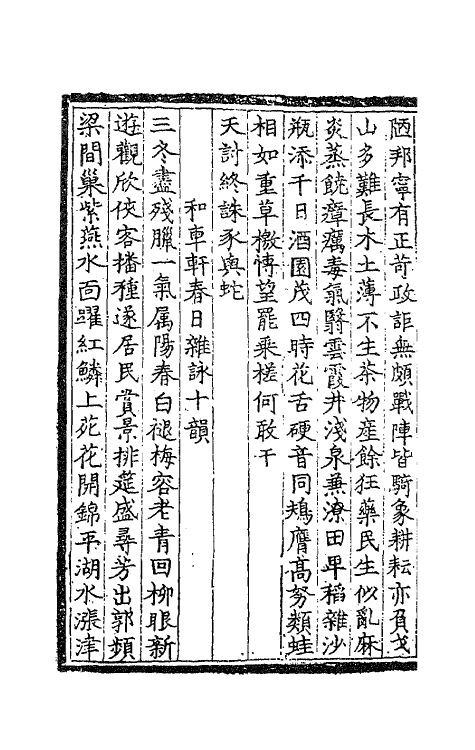 陋邦寧有正苛政詎無頗戰陣皆騎象耕耘亦負戈
山多難長木土薄不生茶物產餘狂藥民生似亂麻
炎蒸饒瘴癘毒氣翳雲霞井淺泉兼潦田旱稻雜沙
瓶添千日酒園茂四時花舌硬音同鴂膺高努類蛙
相如重草檄博望罷乘槎何敢干
天討終誅豕與蛇
和車軒春日雜詠十韻
三冬盡殘臘一氣属陽春白褪梅容老青回柳眼新
遊觀欣俠客播種遂居民賞景排筵盛尋芳出郭頻
梁間巢紫燕水面躍紅鱗上苑花開錦平湖水漲津